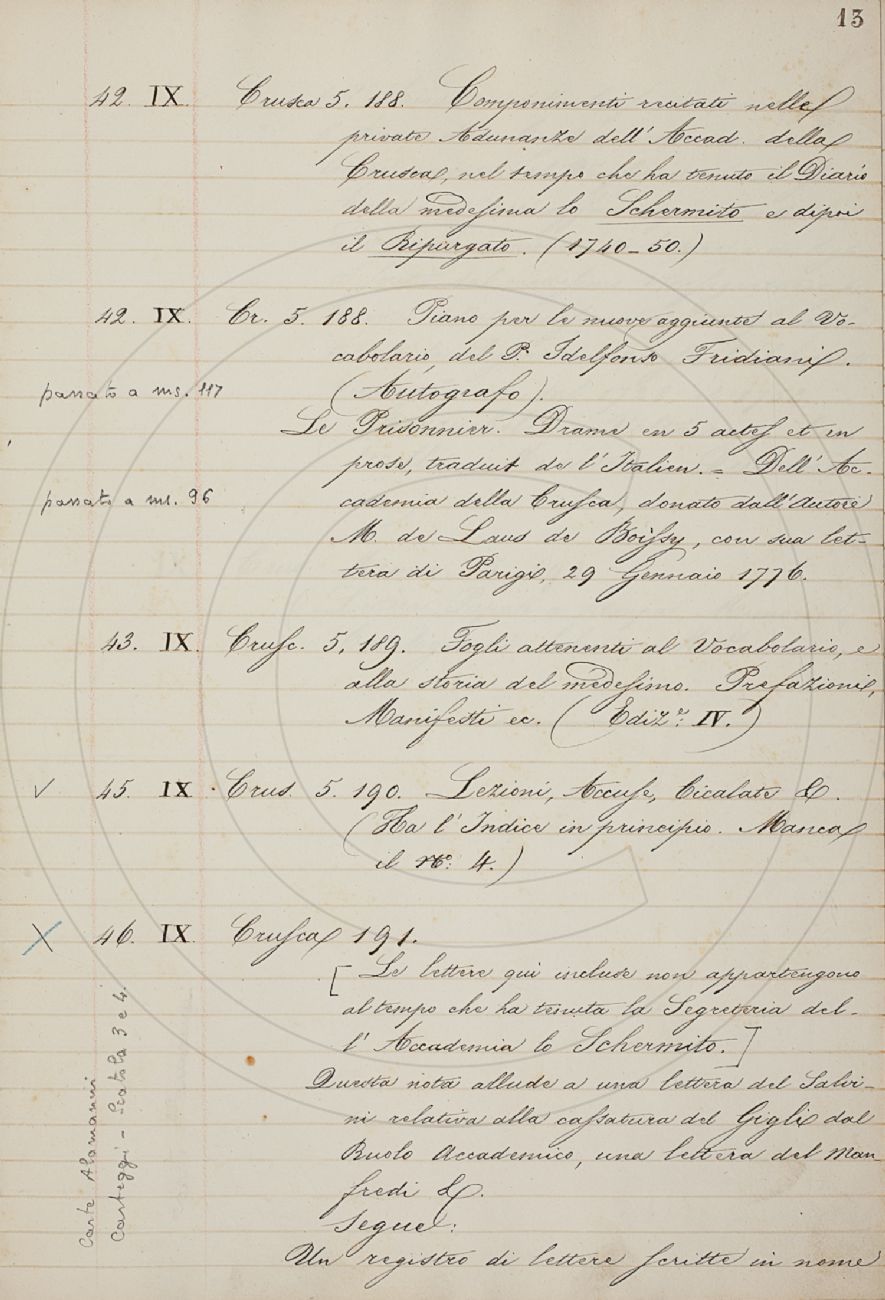 13
42. IX. Crusca 5. 188. Componimenti recitati nelle
private Adunanze dell' Accad. della
Crusca, nel tempo che ha tenuto il Diario
della medesima lo Schermito e dipoi
il Ripurgato. (1740-50.)
42. IX. Cr. 5. 188. Piano per le nuove aggiunte al Vo-
cabolario, del P. Idelfonso Fridiani.
passato a ms. 117
(Autografo).
Le Prisonnier. Drame en 5 actes et in
prose, traduit de l'Italien. = Dell' Ac-
passato a ms. 96
cademia della Crusca, donato dall'Autore
M. de Laus de Boissy, con sua let-
tera di Parigi, 29 Gennaio 1776.
43. IX. Crusc. 5. 189. Fogli attenenti al Vocabolario, e
alla storia del medesimo. Prefazioni,
Manifesti ec. (Ediz.e: IV.)
✓ 45. IX. Crus. 5. 190. Lezioni, Accuse, Cicalate &.
(Ha l'Indice in principio. Manca
il No: 4.)
X 46. IX. Crusca 191.
[Le lettere qui incluse non appartengono
al tempo che ha tenuta la Segreteria del-
l' Accademia lo Schermito.]
Questa nota allude a una lettera del Salvi-
ni relativa alla cassatura del Gigli dal
Ruolo Accademico, una lettera del Man-
fredi &.
Segue:
Un registro di lettere scritte in nome
Carte Alamanni
Carteggi - Scatola 3 e 4.